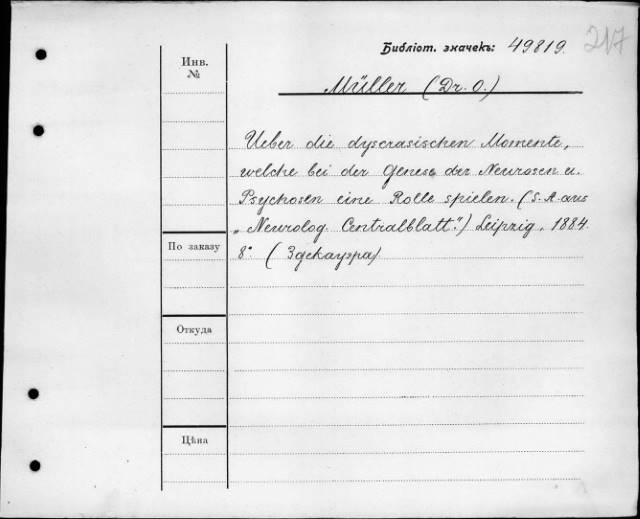 Библіот. значекъ: 49819. 217
Инв. №
Müller (Dr. O.)
Ueber die dyscrasischen Momente,
welche bei der Genese der Neurosen u.
Psychosen eine Rolle spielen. (S. A. aus
„Neurolog. Centralblatt.") Leipzig, 1884.
8° (Здекауэра)
По заказу
Откуда
Цѣна